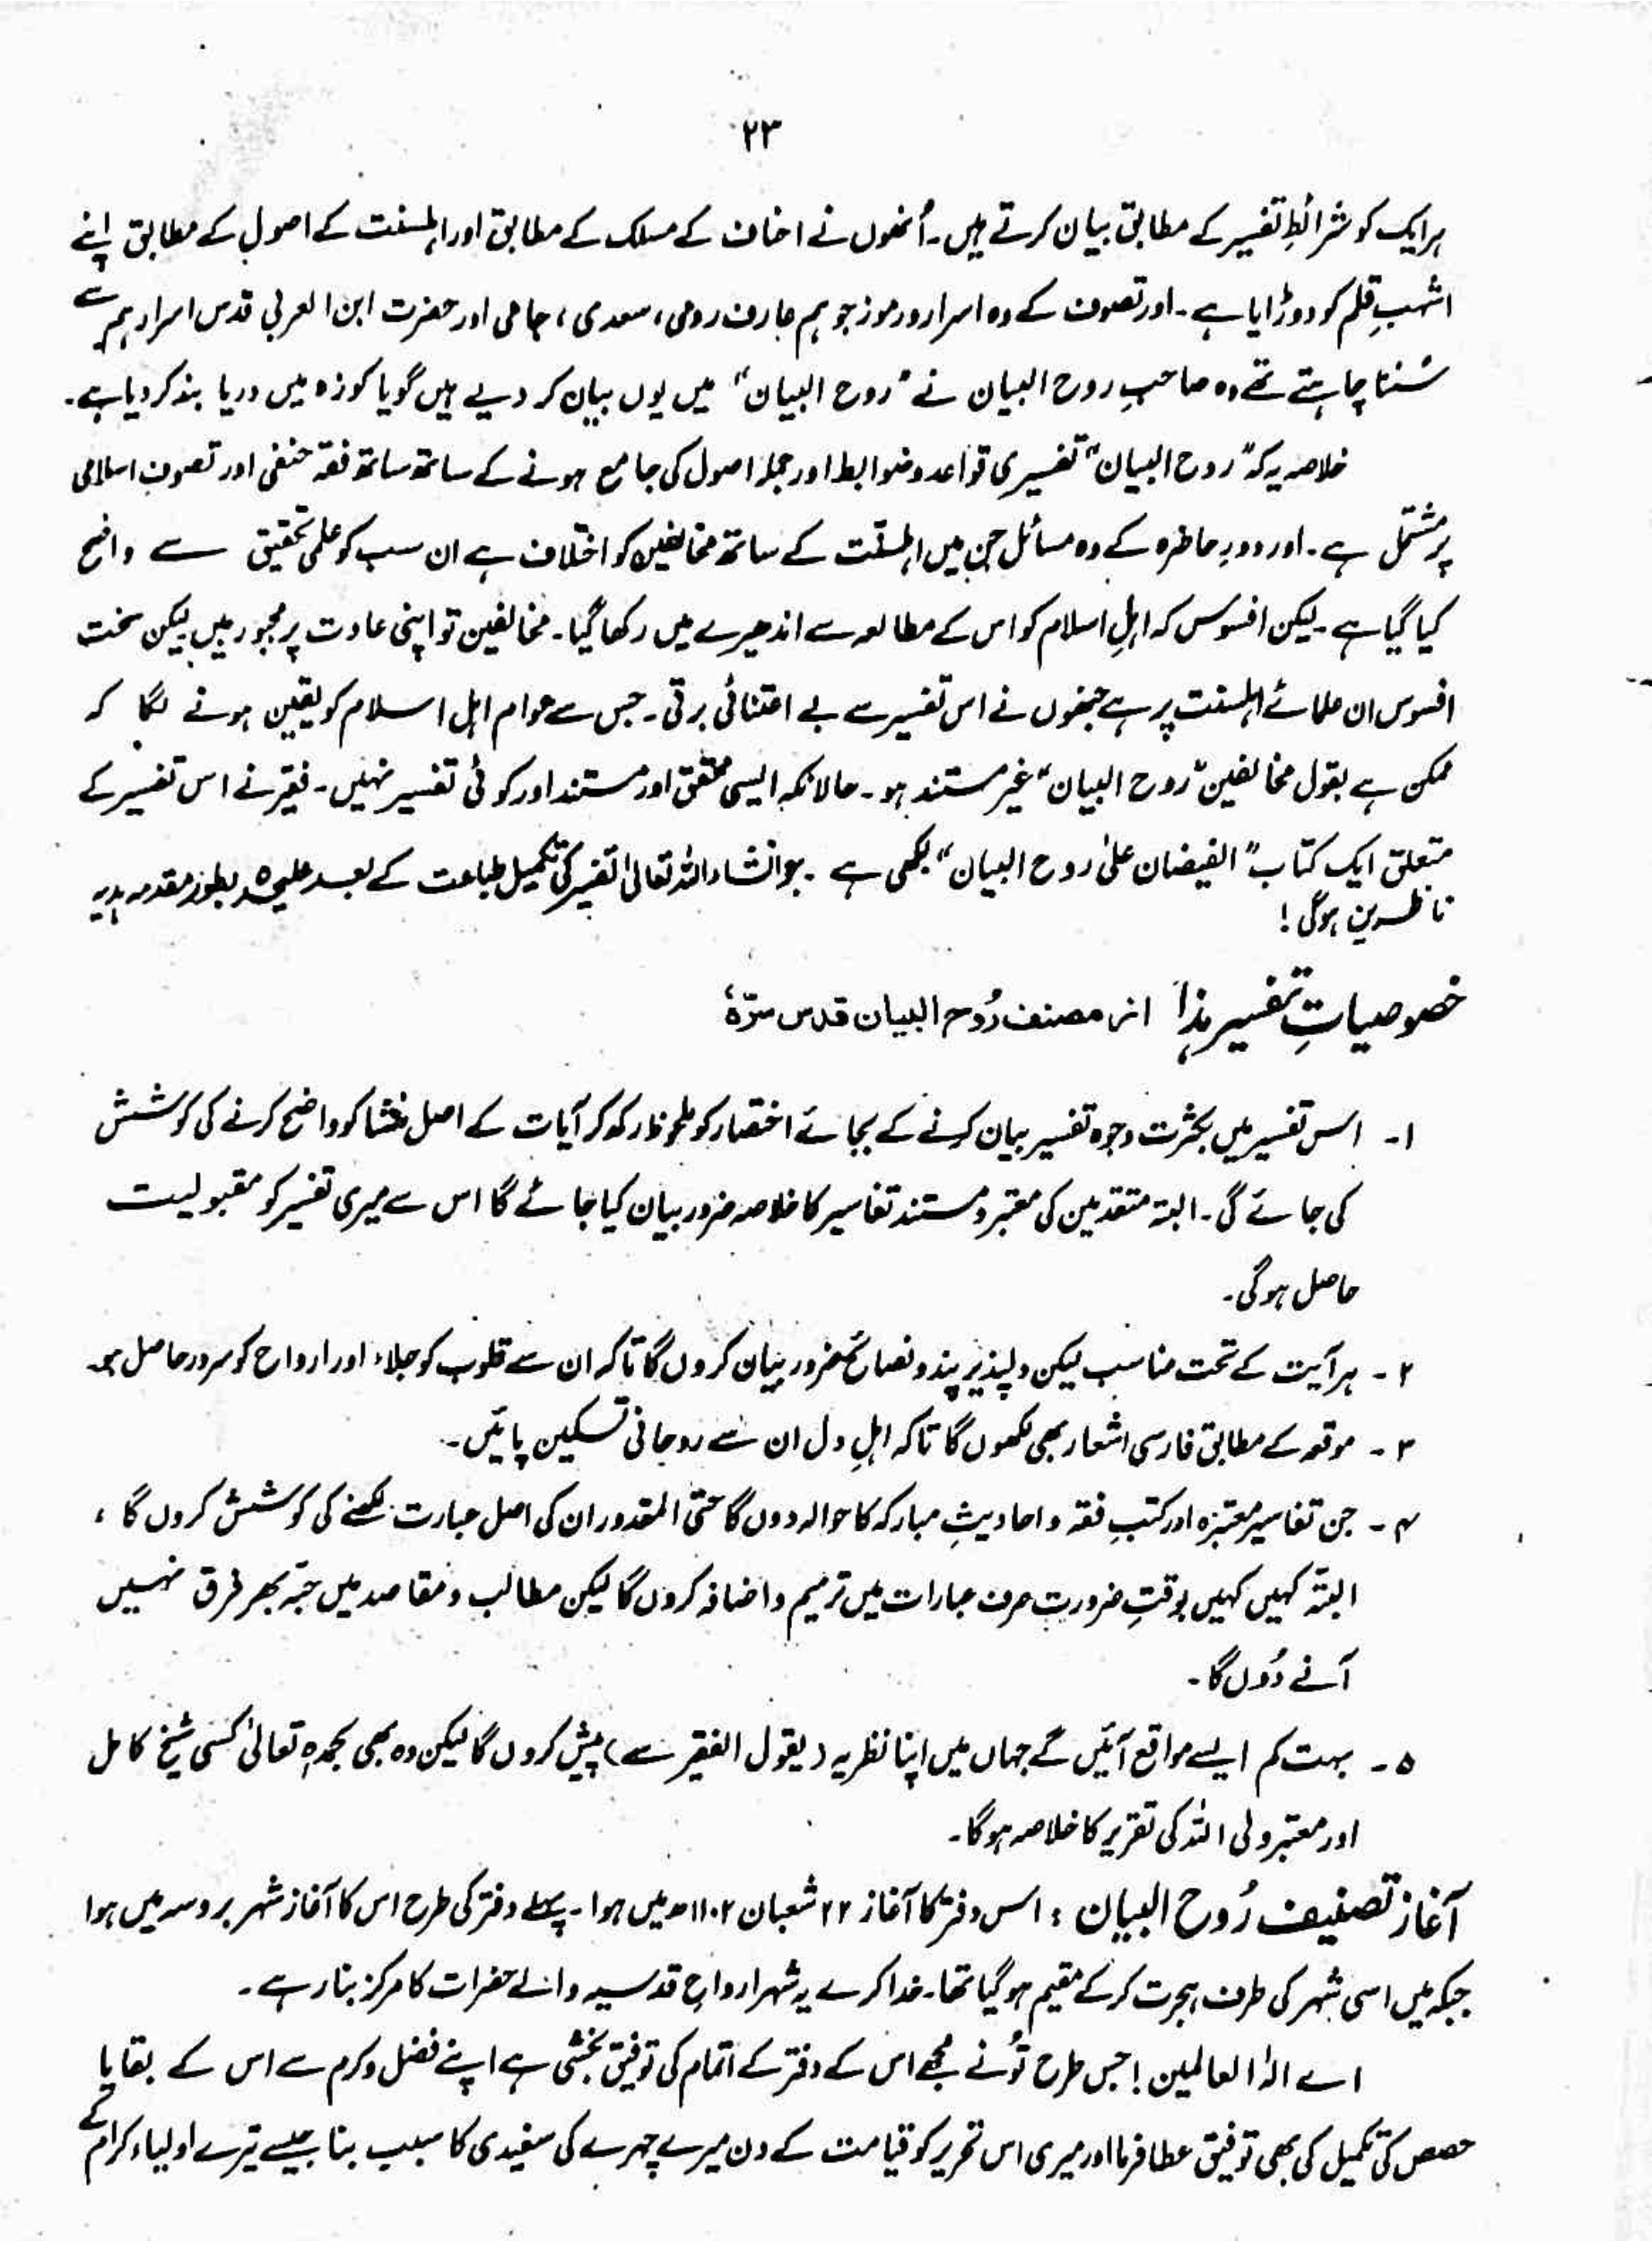 ۲۳
ہر ایک کو شرائطِ تفسیر کے مطابق بیان کرتے ہیں۔ اُنھوں نے احناف کے مسلک کے مطابق اور اہلسنت کے اصول کے مطابق اپنے
اشہبِ قلم کو دوڑایا ہے۔ اور تصوف کے وہ اسرار و رموز جو ہم عارف رومی، سعدی، جامی اور حضرت ابن العربی قدس اسرارہم سے
سُننا چاہتے تھے وہ صاحبِ روح البیان نے "روح البیان" میں یوں بیان کر دیے ہیں گویا کوزہ میں دریا بند کر دیا ہے۔
خلاصہ یہ کہ "روح البیان" تفسیری قواعد و ضوابط اور جملہ اصول کی جامع ہونے کے ساتھ ساتھ فقہ حنفی اور تصوف اسلامی
پر مشتمل ہے۔ اور دورِ حاضرہ کے وہ مسائل جن میں اہلسنّت کے ساتھ مخالفین کو اختلاف ہے ان سب کو علمی تحقیق سے واضح
کیا گیا ہے۔ لیکن افسوس کہ اہلِ اسلام کو اس کے مطالعہ سے اندھیرے میں رکھا گیا۔ مخالفین تو اپنی عادت پر مجبور ہیں لیکن سخت
افسوس ان علمائے اہلسنت پر ہے جنھوں نے اس تفسیر سے بے اعتنائی برتی۔ جس سے عوام اہل اسلام کو یقین ہونے لگا کہ
ممکن ہے بقول مخالفین "روح البیان" غیر مستند ہو۔ حالانکہ ایسی محقق اور مستند اور کوئی تفسیر نہیں۔ فقیر نے اس تفسیر کے
متعلق ایک کتاب "الفیضان علیٰ روح البیان" لکھی ہے۔ جو انشاء اللہ تعالیٰ تفسیر کی تکمیل طباعت کے بعد علیحدہ بطور مقدمہ ہدیہ
ناظرین ہوگی!
خصوصیاتِ تفسیر ہذا از مصنف رُوح البیان قدس سرّہٗ
۱۔ اس تفسیر میں بکثرت وجوہ تفسیر بیان کرنے کے بجائے اختصار کو ملحوظ رکھ کر آیات کے اصل منشا کو واضح کرنے کی کوشش
کی جائے گی۔ البتہ متقدمین کی معتبر و مستند تفاسیر کا خلاصہ ضرور بیان کیا جائے گا اس سے میری تفسیر کو مقبولیت
حاصل ہوگی۔
۲۔ ہر آیت کے تحت مناسب لیکن دلپذیر پند و نصائح ضرور بیان کروں گا تاکہ ان سے قلوب کو جلاء اور ارواح کو سرور حاصل ہو۔
۳۔ موقعہ کے مطابق فارسی اشعار بھی لکھوں گا تاکہ اہلِ دل ان سے روحانی تسکین پائیں۔
۴۔ جن تفاسیر معتبرہ اور کتبِ فقہ و احادیثِ مبارکہ کا حوالہ دوں گا حتی المقدور ان کی اصل عبارت لکھنے کی کوشش کروں گا،
البتّہ کہیں کہیں بوقتِ ضرورت صرف عبارات میں ترمیم و اضافہ کروں گا لیکن مطالب و مقاصد میں حبّہ بھر فرق نہیں
آنے دُوں گا۔
۵۔ بہت کم ایسے مواقع آئیں گے جہاں میں اپنا نظریہ (یقول الفقیر سے) پیش کروں گا لیکن وہ بھی بحمدہٖ تعالیٰ کسی شیخ کامل
اور معتبر ولی اللہ کی تقریر کا خلاصہ ہوگا۔
آغاز تصنیف رُوح البیان : اس دفتر کا آغاز ۲۲ شعبان ۱۱۰۲ھ میں ہوا۔ پہلے دفتر کی طرح اس کا آغاز شہر بروسہ میں ہوا
جبکہ میں اسی شہر کی طرف ہجرت کر کے مقیم ہو گیا تھا۔ خدا کرے یہ شہر ارواحِ قدسیہ والے حضرات کا مرکز بنا رہے۔
اے الٰہ العالمین! جس طرح تُو نے مجھے اس کے دفتر کے اتمام کی توفیق بخشی ہے اپنے فضل و کرم سے اس کے بقایا
حصص کی تکمیل کی بھی توفیق عطا فرما اور میری اس تحریر کو قیامت کے دن میرے چہرے کی سفیدی کا سبب بنا جیسے تیرے اولیاء کرام کے